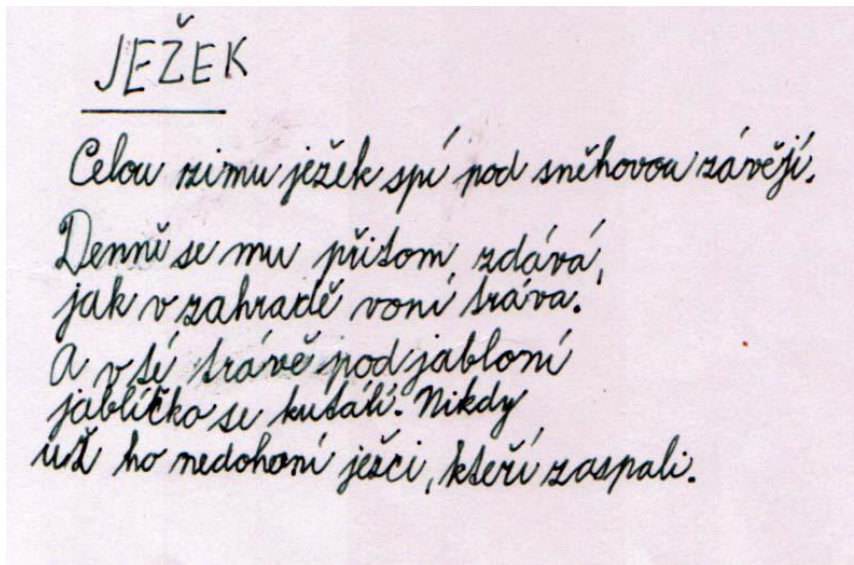 JEŽEK
Celou zimu ježek spí pod sněhovou závějí.
Denně se mu přitom zdává,
jak v zahradě voní tráva.
A v té trávě pod jabloní
jablíčko se kutálí. Nikdy
už ho nedohoní ježci, kteří zaspali.